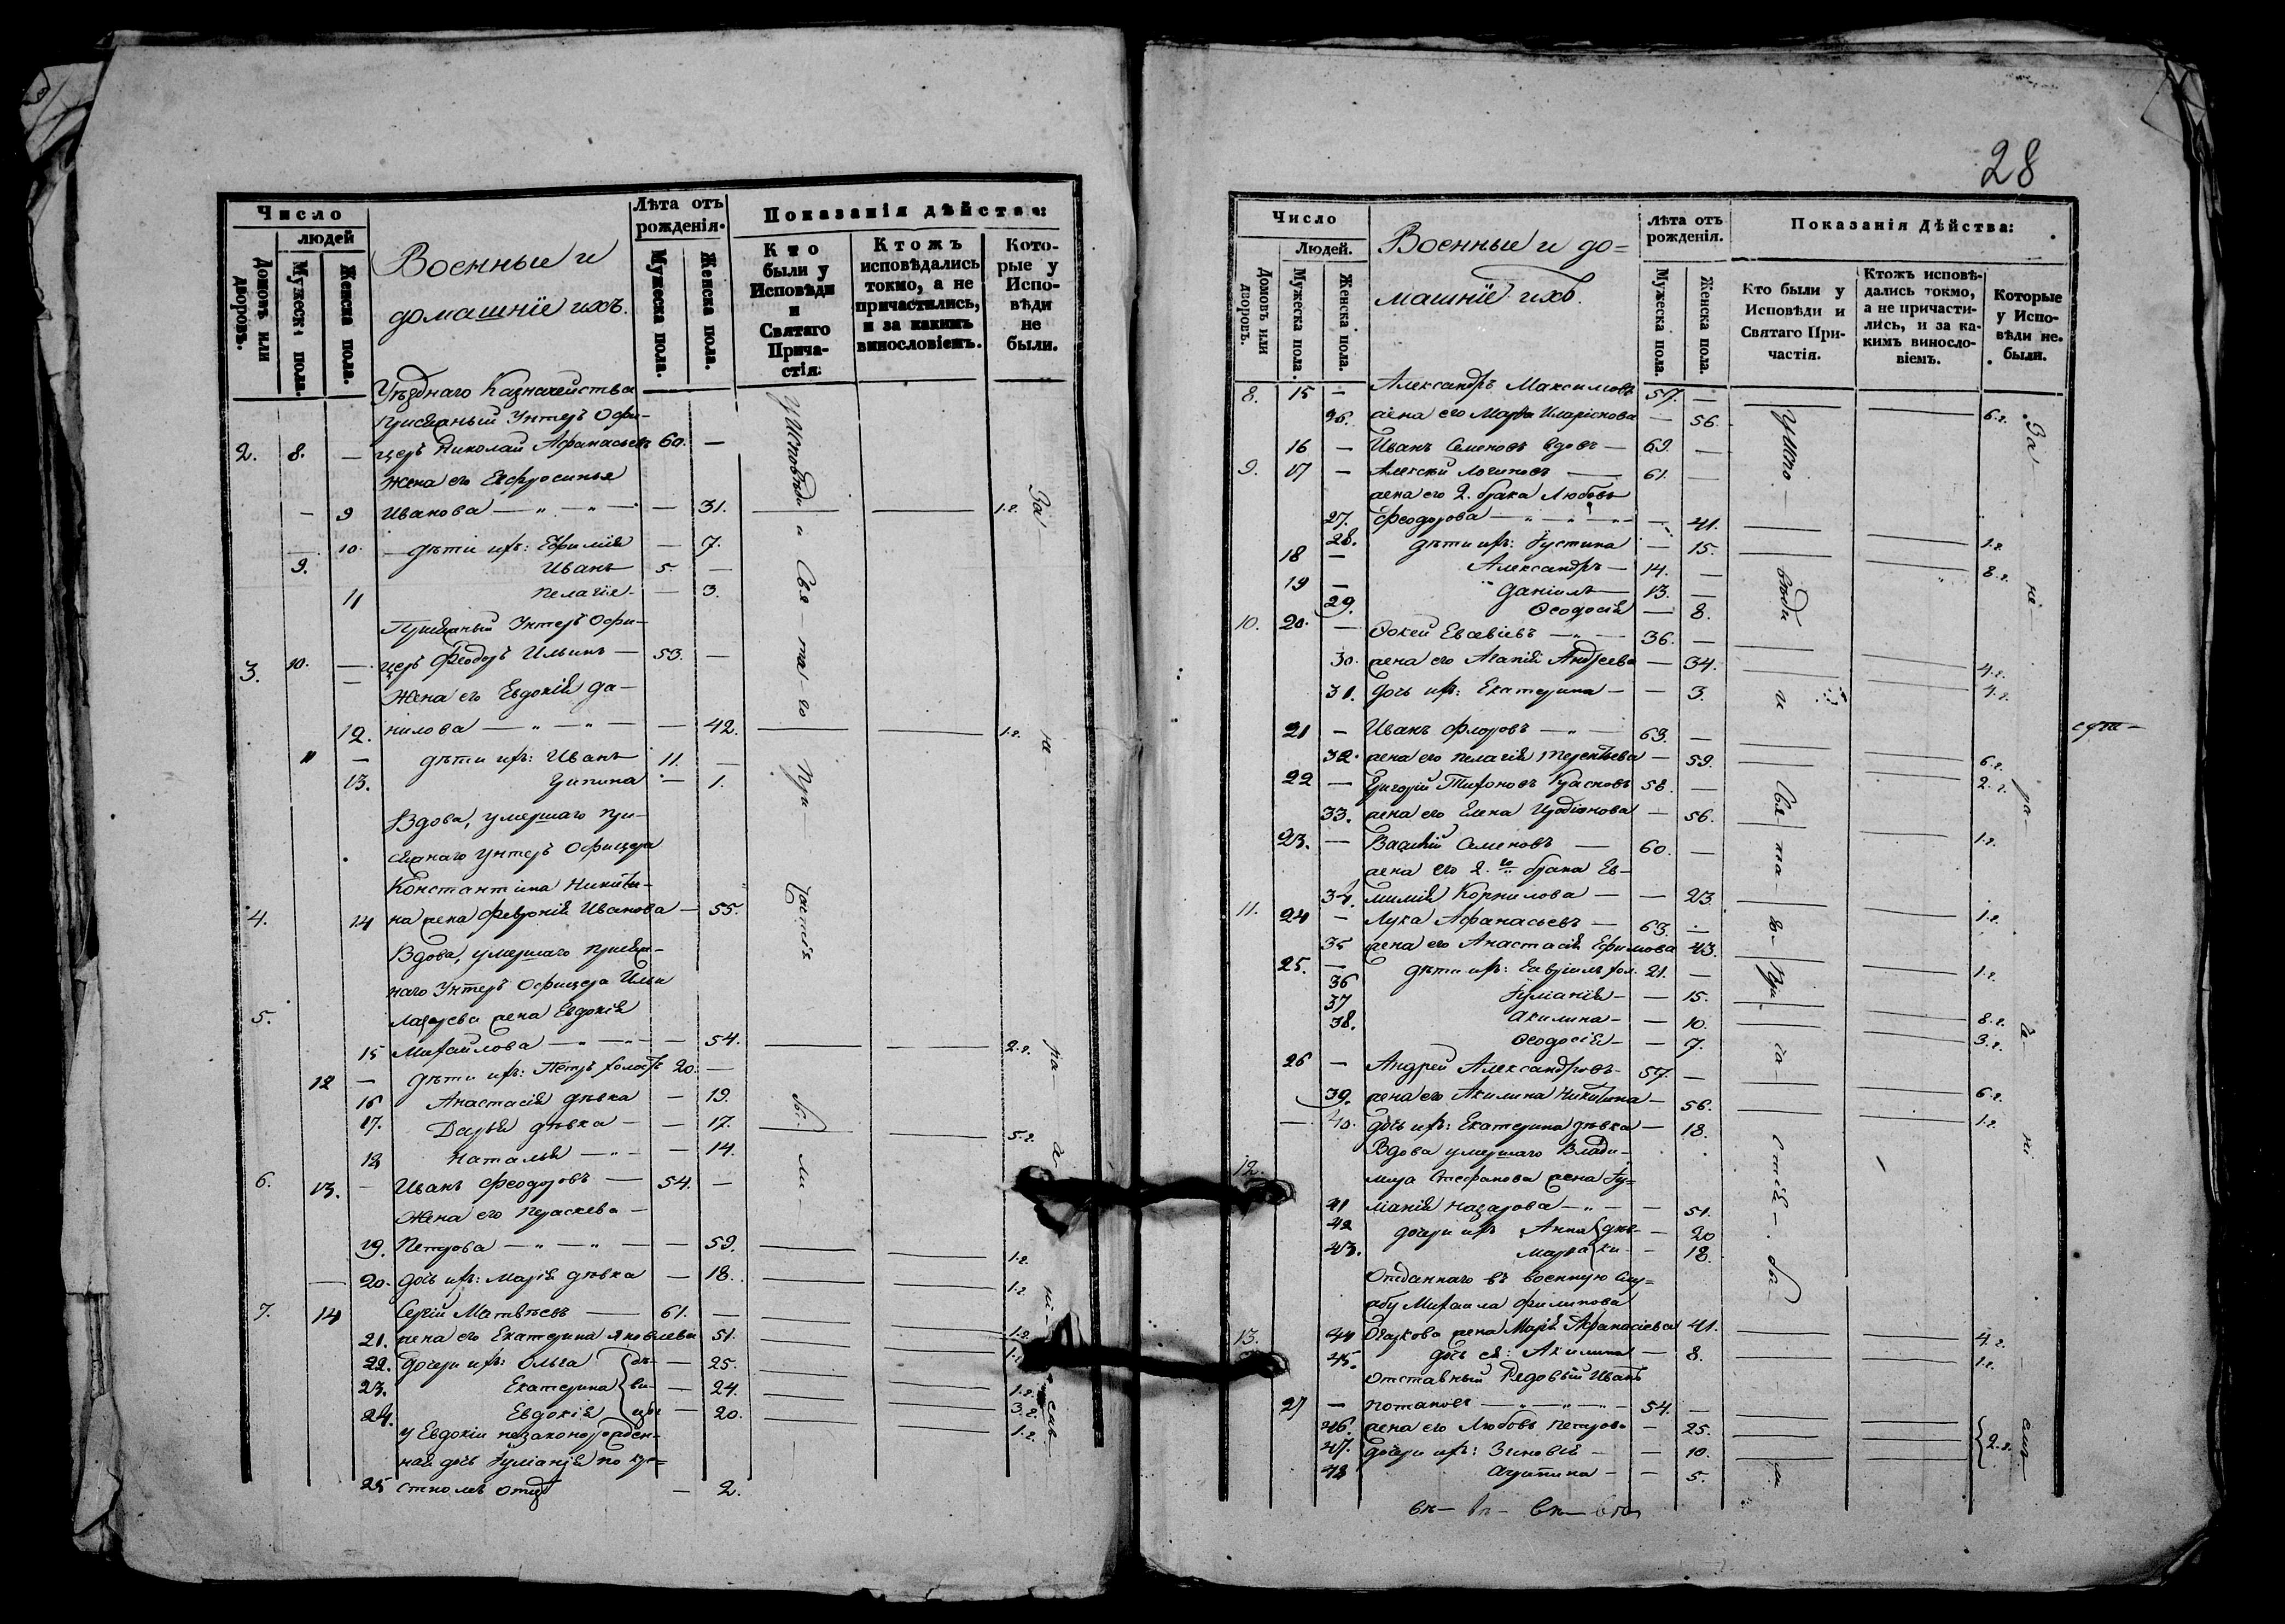 Число
людей
Домовъ или дворовъ.
Мужеска пола.
Женска пола.
Военныи и
домашнїе ихъ.
Лѣта отъ
рожденія.
Мужеска пола.
Женска пола.
Показанія дѣйства:
Кто
были у
Исповѣди
и
Святаго
Прича-
стія:
Ктожъ
исповѣдались
токмо, а не
причастились,
и за какимъ
винословіемъ.
Кото-
рые у
Испо-
вѣди
не
были.
Уѣзднаго Казначейства
Присяжный Унтеръ Офи-
2. 8. — церъ Николай Афанасьевъ 60. —
Жена его Евфросинья
— 9 Иванова — „ — „ — — 31. 1.г.
— 10. — дѣти ихъ: Ефимія — 7.
9. Иванъ — 5. —
11 Пелагія — — 3.
Присяжный Унтеръ Офи-
3. 10. — церъ Феодоръ Ильинъ — 53. —
— Жена его Евдокія Да-
12. нилова — „ — „ — — 42. 1.г.
11 — дѣти ихъ: Иванъ 11. —
13. Ирина — 1.
Вдова, умершаго при-
сяжнаго унтеръ Офицера
Константина Никити-
4. 14 на жена Феврония Иванова — 55.
Вдова, умершаго присяж-
наго Унтеръ Офицера Ильи
5. Лазарева жена Евдокія
15 Михайлова — „ — „ — — 54. 2.г.
12 — дѣти ихъ: Петръ холостъ 20. —
16 Анастасія дѣвка — 19.
17. Дарья дѣвка — — 17. 5.г.
18 Наталья — „ — — 14.
6. 13. — Иванъ Феодоровъ — 54. —
Жена его Параскева —
19. Петрова — „ — „ — — 59. 1.г.
20. дочь ихъ: Марія дѣвка — 18. 1.г.
7. 14 Сергій Матвѣевъ — 61. —
21. жена его Екатерина Яковлева 51. 1.г.
22. дочери ихъ: Ольга { дѣ- — 25. 1.г.
23. Екатерина { ви- — 24. 1.г.
24. Евдокія { цы — 20. 3.г.
у Евдокіи незаконорожден- 1.г.
ная дочь Іуліанія по кре-
25 стномъ отцѣ — 2.
У Исповѣди и Свя-та-го При-частія бы-ли
За не ра-дѣ-ні-емъ
28
Число
Людей.
Домовъ или дворовъ.
Мужеска пола.
Женска пола.
Военныи и до=
машнїе ихъ.
Лѣта отъ
рожденія.
Мужеска пола.
Женска пола.
Показанія Дѣйства:
Кто были у
Исповѣди и
Святаго При-
частія.
Ктожъ исповѣ-
дались токмо,
а не причасти-
лись, и за ка-
кимъ винослo-
віемъ.
Которые
у Испо-
вѣди не
были.
8. 15 — Александръ Максимовъ 57. —
26. жена его Марѳа Иларіонова — 56. 6.г.
16 — Иванъ Семеновъ вдовъ — 69. —
9. 17 — Алексѣй Логиновъ — 61. —
жена его 2. брака Любовь
27. Феодорова — „ — „ — „ — 41.
28. дѣти ихъ: Іустина — 15. 1.г.
18 — Александръ — 14. — 8.г.
19 — Даніилъ — 13. —
29. Ѳеодосія — 8.
10. 20. — Фокей Евсевіевъ — „ — 36. —
30. жена его Агапія Андреева — 34. 4.г.
31. дочь ихъ: Екатерина — — 3. 4.г.
21 — Иванъ Флоровъ — „ — 63. —
32. жена его Пелагія Терентьева — 59. 6.г.
22 — Григорій Тихоновъ Красновъ 58. — 2.г.
33. жена его Елена Иродіонова — 56.
23. — Василій Семеновъ — 60. — 1.г.
жена его 2.го брака Ев-
34. милія Корнилова — — 23.
11. 24 — Лука Афанасьевъ — 63. — 1.г.
35 жена его Анастасія Ефимова 43.
25. — дѣти ихъ: Гавріилъ хол. 21. — 1.г.
36 Іуліанія — — 15.
37 Акилина — — 10. 8.г.
38. Ѳеодосія — — 7. 3.г.
26 — Андрей Александровъ — 57. —
39. жена его Акилина Никитина — 56. 6.г.
— 40. дочь ихъ: Екатерина дѣвка — 18. 1.г.
Вдова умершаго Влади-
12. мира Стефанова жена Іу=
41 ліанія Назарова — „ — — 51.
42 дочери ихъ Анна { дѣв- — 20
43. Марѳа { ки — — 18.
Отданнаго въ военную слу=
жбу Михаила Филипова
13. 44 жена Марія Афанасіева 41. 4.г.
45. дочь ея: Акилина — 8. 1.г.
Отставный Рядовый Иванъ
27 — Потаповъ — „ — „ — „ — 54. —
46. жена его Любовь Петрова — 25.
47. дочери ихъ: Зиновія — — 10. { 2.г.
48 Агрипина — — 5.
У Испо-вѣди и Свя-та-го При-ча-стія бы-ли
За не-ра-дѣ-ні-емъ